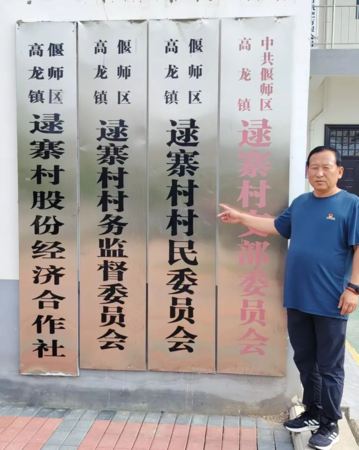 中共偃师区
高龙镇
逯寨村支部委员会
偃师区
高龙镇
逯寨村村民委员会
偃师区
高龙镇
逯寨村村务监督委员会
偃师区
高龙镇
逯寨村股份经济合作社